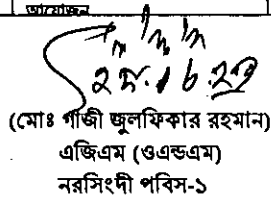 আয়োজন
(মোঃ গাজী জুলফিকার রহমান)
এজিএম (ওএন্ডএম)
নরসিংদী পবিস-১